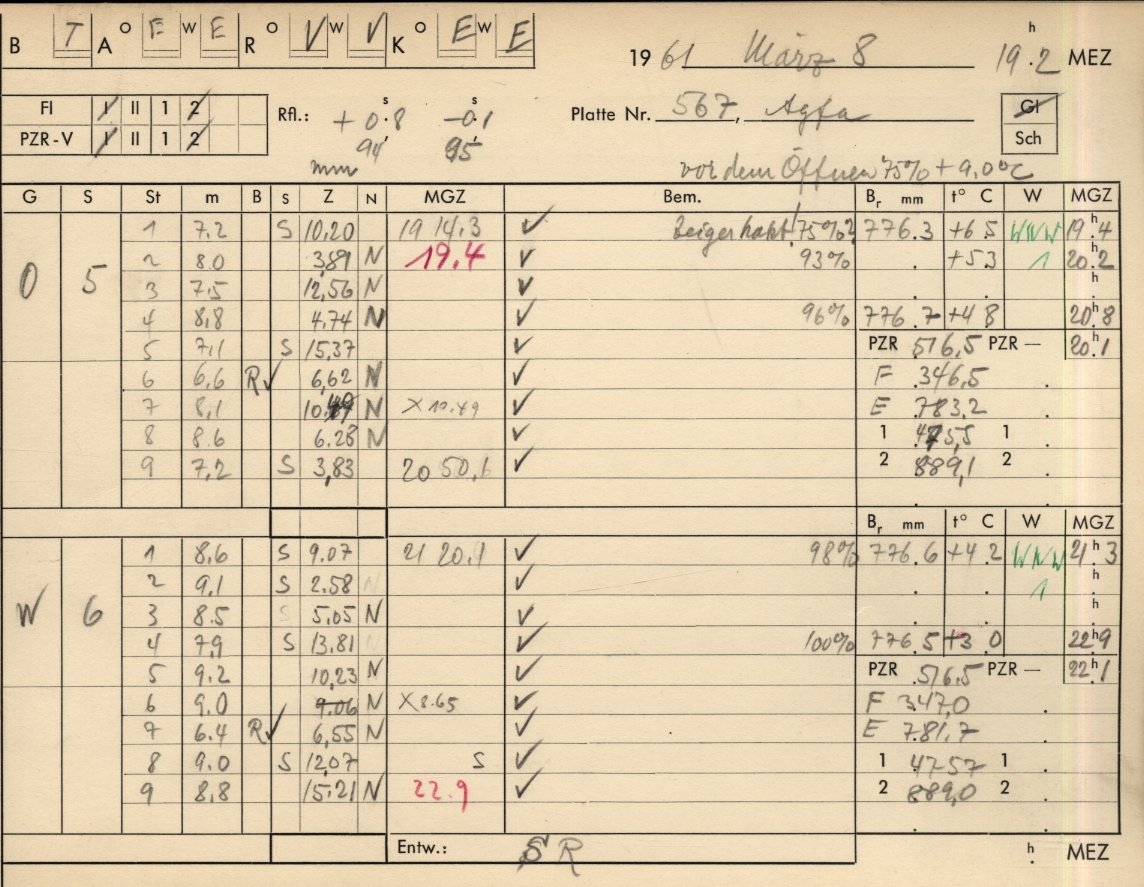 B T A O E W E R O V W V K O E W E
19 61 März 8 19.2 h MEZ
FI I II 1 2
PZR-V I II 1 2
Rfl.: + 0.8 s -0.1 s
94' 95'
mm
Platte Nr. 567, Agfa
Gl
Sch
vor dem Öffnen 75% + 9,0°C
G S St m B S Z N MGZ Bem. Br mm t° C W MGZ
1 7.2 S 10,20 19 14.3 ✓ Zeiger hakt! 75%? 776.3 +6.5 WNW 19.4 h
2 8.0 3,89 N 19.4 ✓ 93% . +5.3 1 20.2
O 5 3 7.5 12,56 N ✓ h
4 8,8 4,74 N ✓ 96% 776.7 +4.8 20.8 h
5 7,1 S 15,37 ✓ PZR 516,5 PZR — 20.1
6 6,6 R✓ 6,62 N ✓ F 346,5
7 8,1 10.49 N × 10.49 ✓ E 783,2
8 8.6 6.28 N ✓ 1 475,5 1
9 7,2 S 3,83 20 50,6 ✓ 2 889,1 2
Br mm t° C W MGZ
1 8,6 S 9.07 21 20.1 ✓ 98% 776.6 +4.2 WNW 21.3 h
2 9,1 S 2.58 N ✓ 1 h
W 6 3 8.5 S 5,05 N ✓ h
4 7,9 S 13.81 N ✓ 100% 776.5 +3.0 22.9 h
5 9.2 10,23 N ✓ PZR 516.5 PZR — 22.1 h
6 9.0 9.06 N × 8.65 ✓ F 347,0
7 6.4 R✓ 6,55 N ✓ E 781,7
8 9.0 S 12,07 S ✓ 1 4757 1
9 8,8 15.21 N 22.9 ✓ 2 889,0 2
Entw.: SR h MEZ